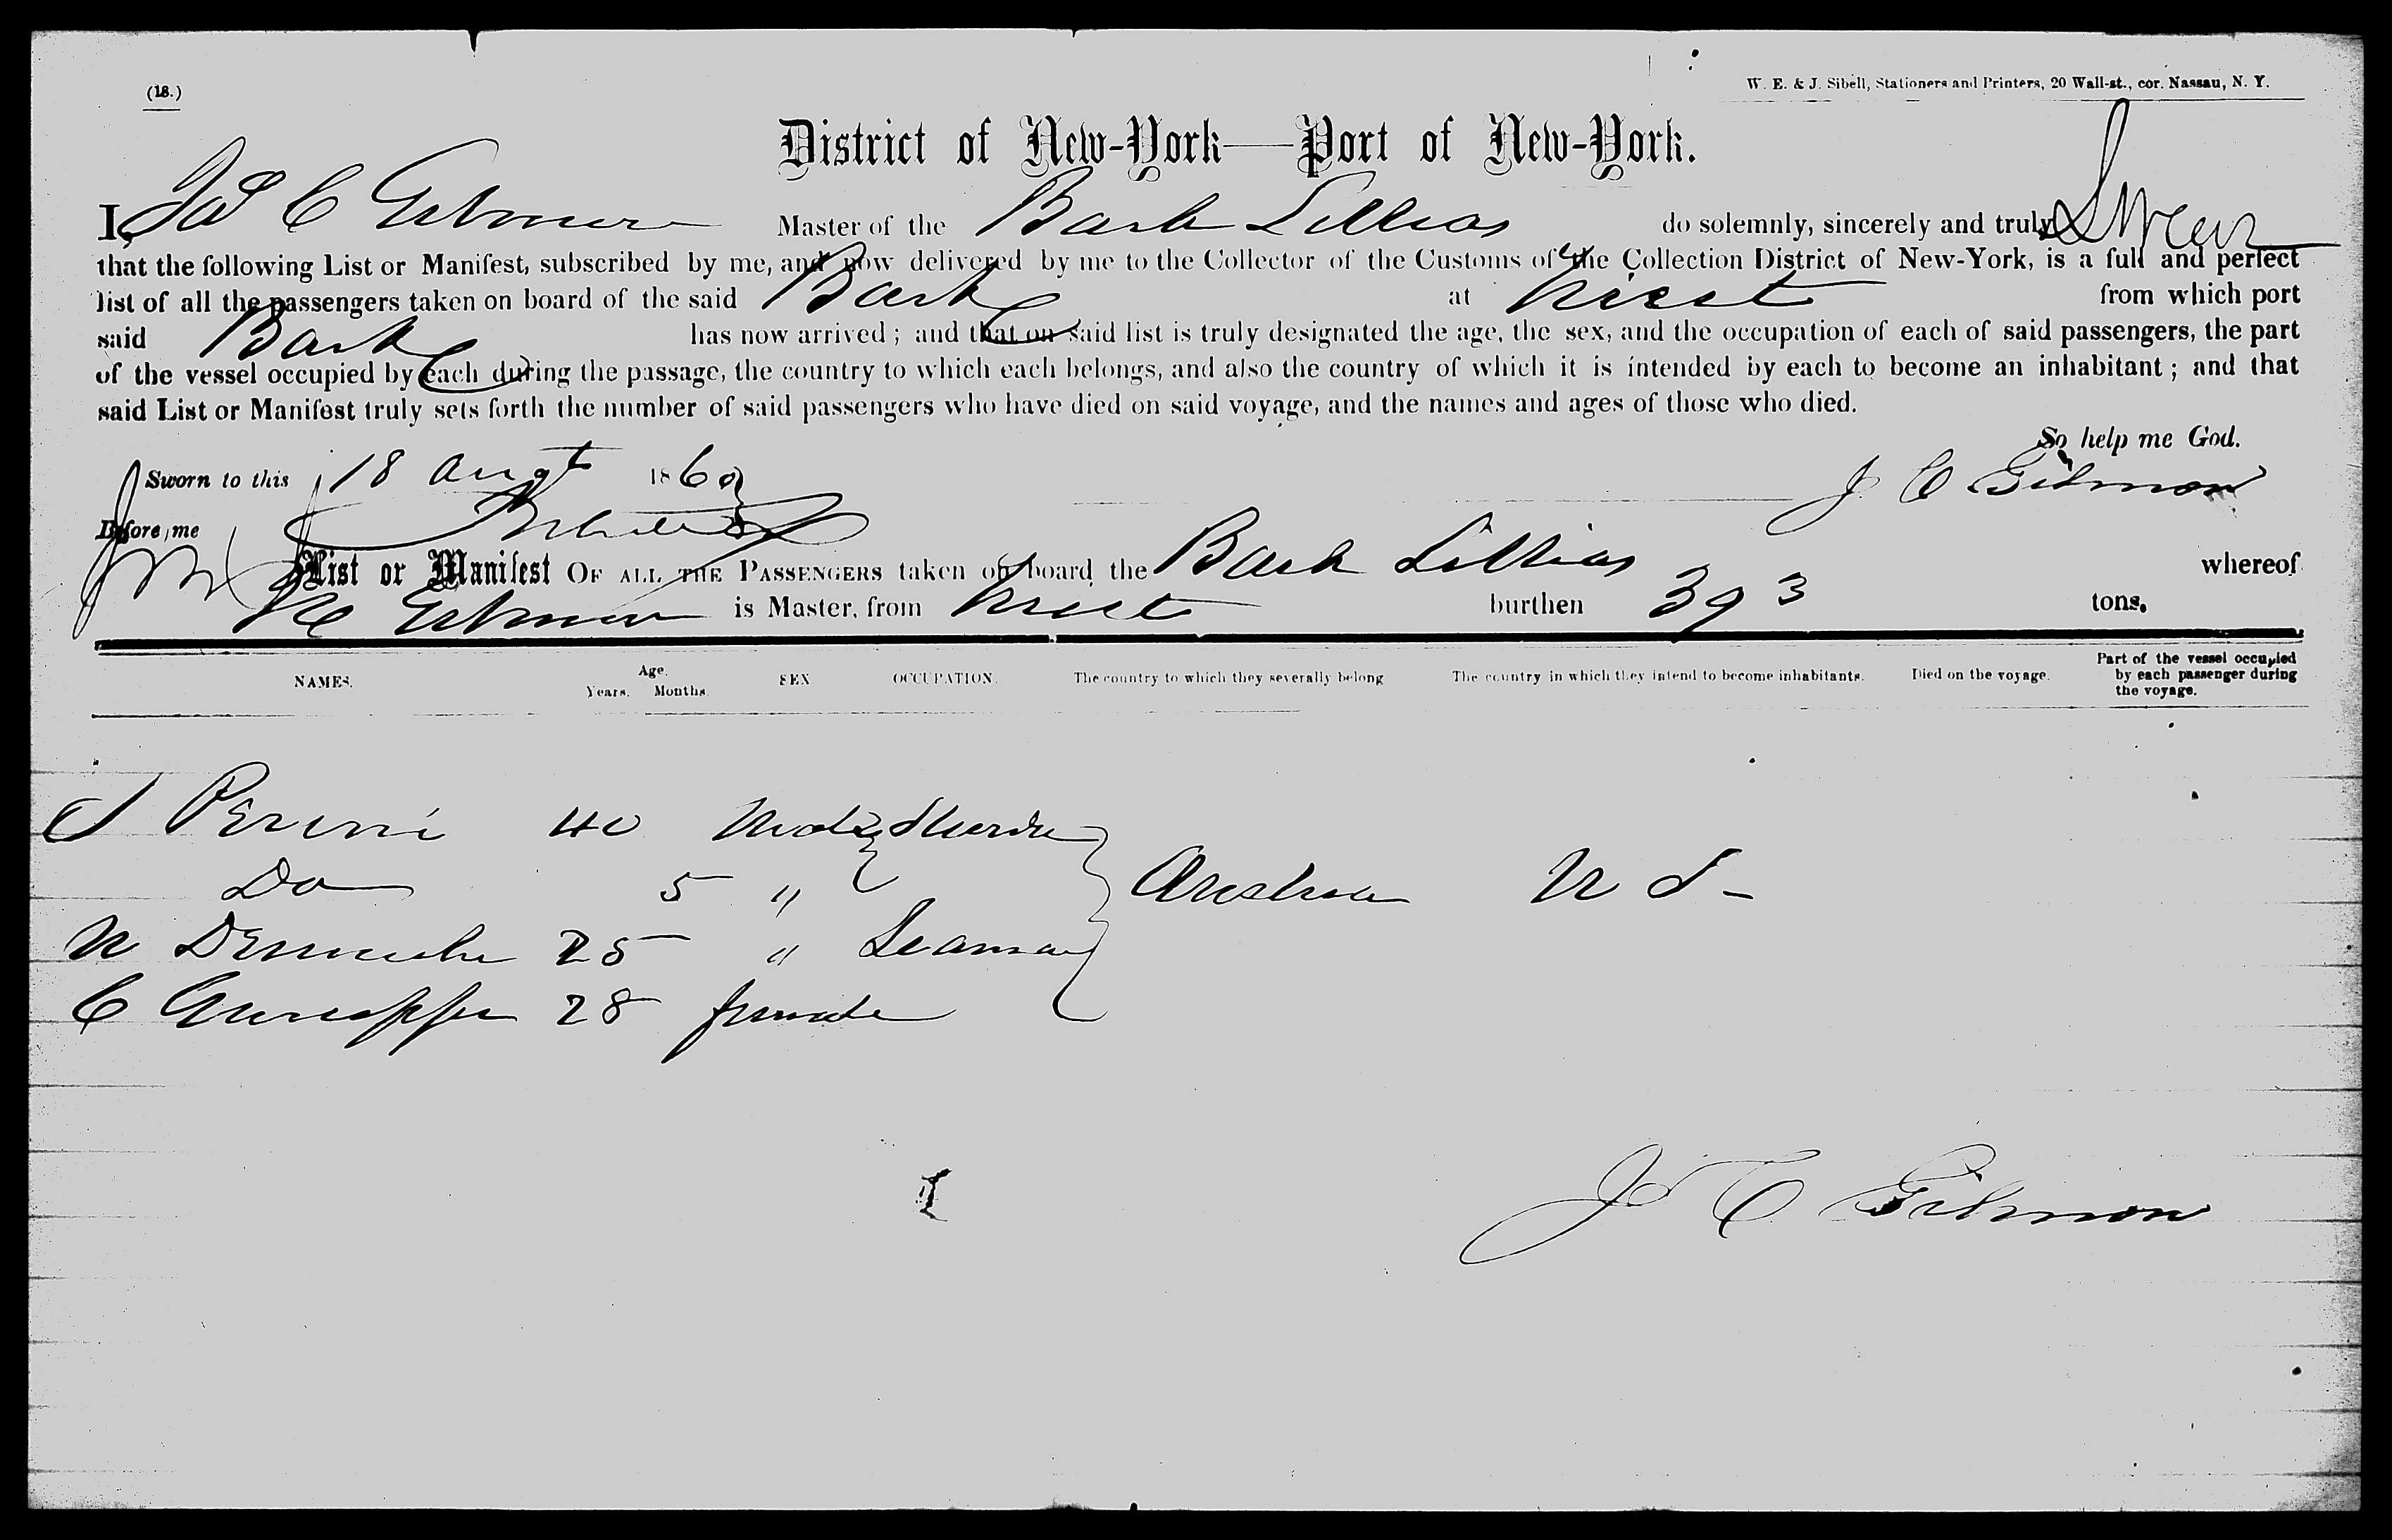 (18.)
W. E. & J. Sibell, Stationers and Printers, 20 Wall-st., cor. Nassau, N. Y.
District of New-York—Port of New-York.
I, Jas C Gilmore Master of the Bark Lillias do solemnly, sincerely and truly Swear
that the following List or Manifest, subscribed by me, and now delivered by me to the Collector of the Customs of the Collection District of New-York, is a full and perfect
list of all the passengers taken on board of the said Bark at from which port
said Bark has now arrived ; and that on said list is truly designated the age, the sex, and the occupation of each of said passengers, the part
of the vessel occupied by each during the passage, the country to which each belongs, and also the country of which it is intended by each to become an inhabitant ; and that
said List or Manifest truly sets forth the number of said passengers who have died on said voyage, and the names and ages of those who died.
So help me God.
Sworn to this 18 Augt 186
J C Gilmore
Before me
List or Manifest OF ALL THE PASSENGERS taken on board the Bark Lillias whereof
Gilmore is Master, from burthen 393 tons.
NAMES. Age. Years. Months. SEX OCCUPATION. The country to which they severally belong The country in which they intend to become inhabitants. Died on the voyage. Part of the vessel occupied by each passenger during the voyage.
Perini 40 Male
Do 5 "
N 25 " Seaman Austria U S
C Guiseppe 28 female
J C Gilmore